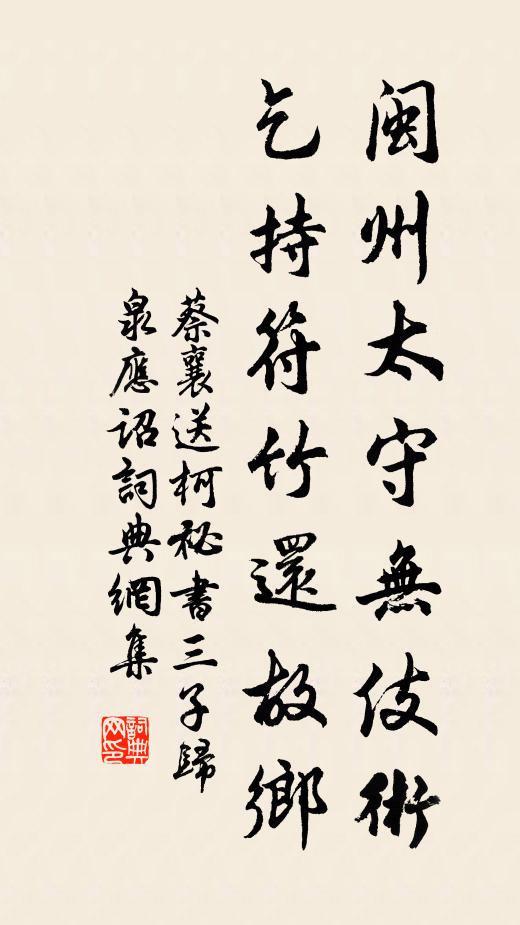 閩州太守無伎術
乞持符竹還故鄉
蔡襄送柯秘書三子歸
泉應詔詞典網集
詞典網印